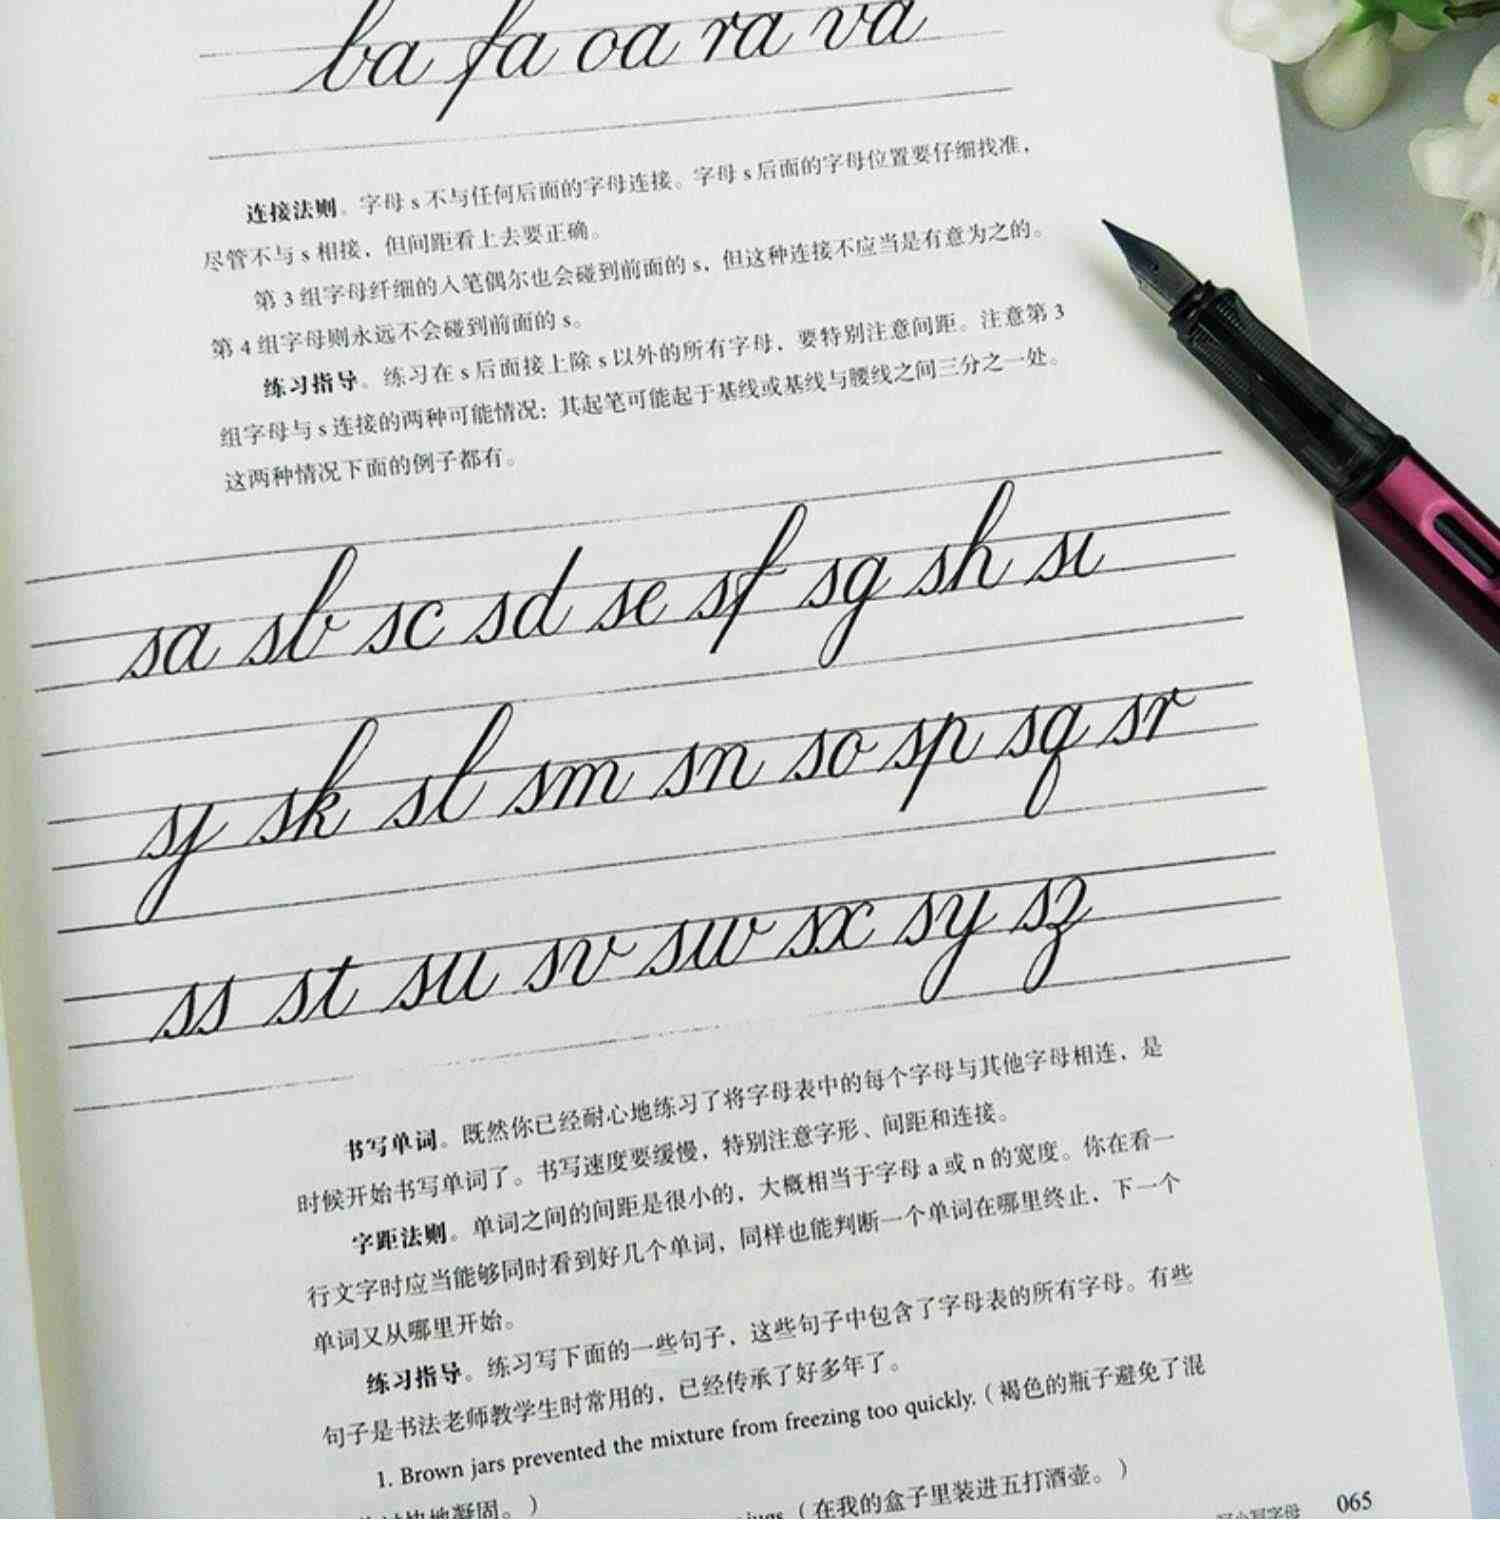 ba fa oa ra va
连接法则。字母 s 不与任何后面的字母连接。字母 s 后面的字母位置要仔细找准，
尽管不与 s 相接，但间距看上去要正确。
第 3 组字母纤细的入笔偶尔也会碰到前面的 s，但这种连接不应当是有意为之的。
第 4 组字母则永远不会碰到前面的 s。
练习指导。练习在 s 后面接上除 s 以外的所有字母，要特别注意间距。注意第 3
组字母与 s 连接的两种可能情况：其起笔可能起于基线或基线与腰线之间三分之一处。
这两种情况下面的例子都有。
sa sb sc sd se sf sg sh si
sj sk sl sm sn so sp sq sr
ss st su sv sw sx sy sz
书写单词。既然你已经耐心地练习了将字母表中的每个字母与其他字母相连，是
时候开始书写单词了。书写速度要缓慢，特别注意字形、间距和连接。
字距法则。单词之间的间距是很小的，大概相当于字母 a 或 n 的宽度。你在看一
行文字时应当能够同时看到好几个单词，同样也能判断一个单词在哪里终止，下一个
单词又从哪里开始。
练习指导。练习写下面的一些句子，这些句子中包含了字母表的所有字母。有些
句子是书法老师教学生时常用的，已经传承了好多年了。
1. Brown jars prevented the mixture from freezing too quickly.（褐色的瓶子避免了混
快地凝固。）
（在我的盒子里装进五打酒壶。）
写小写字母 065